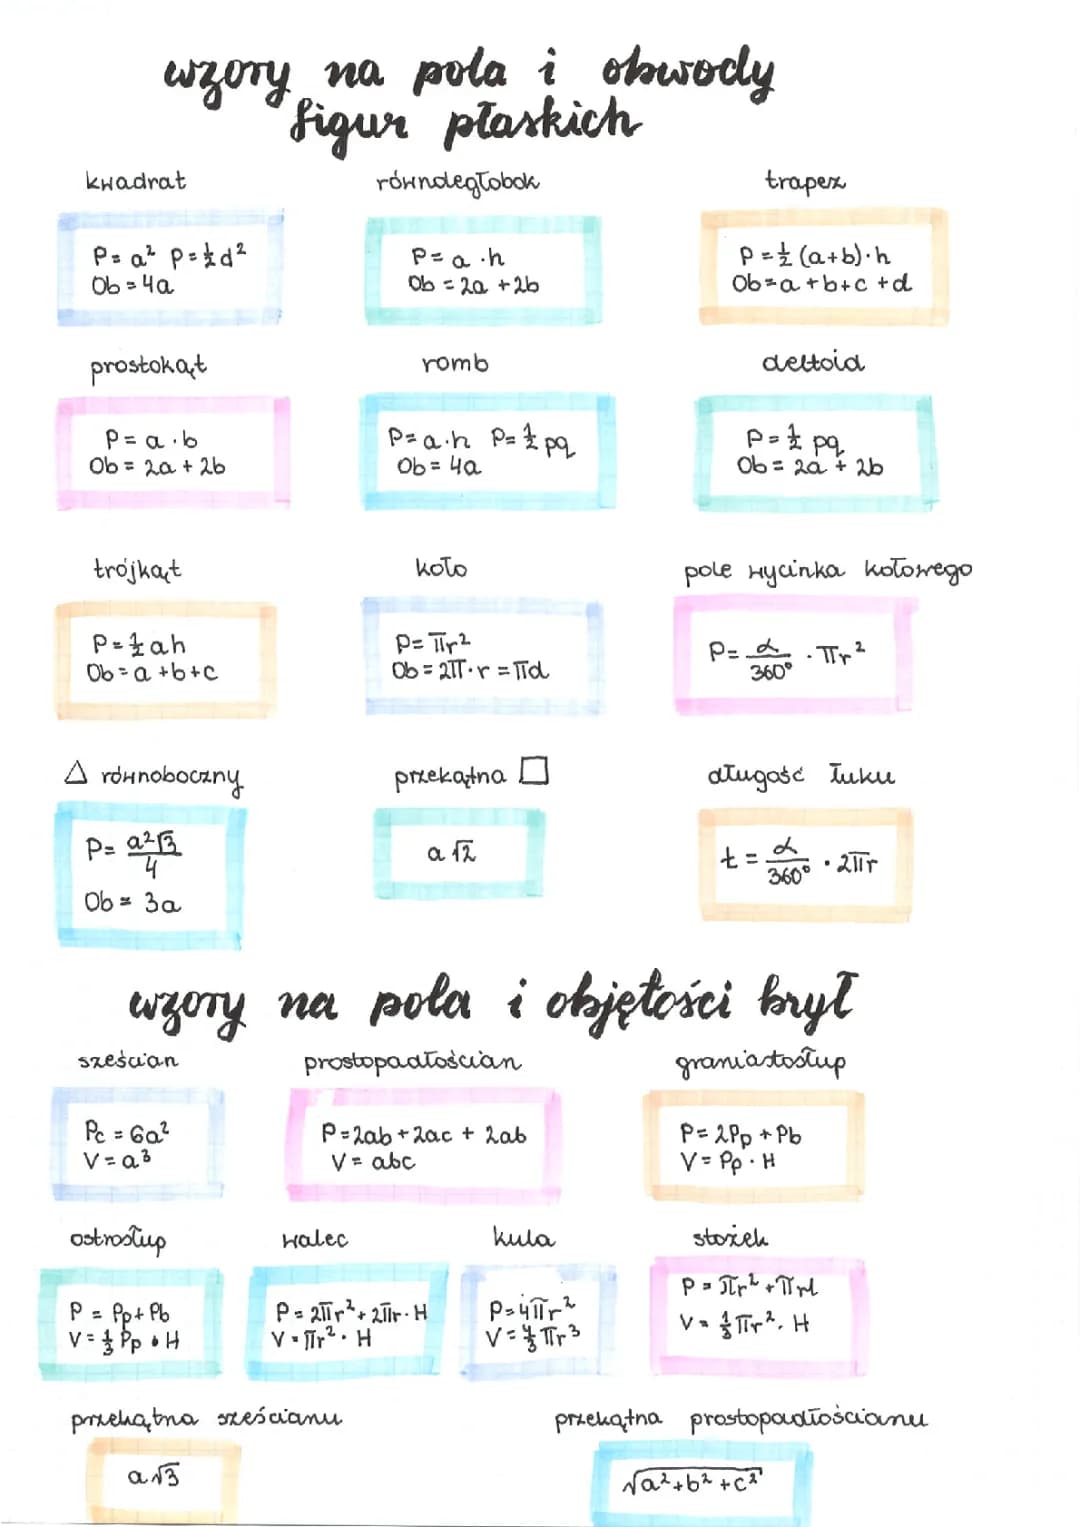 wzory na pola i obwody
figur płaskich
kwadrat
P = a² P = ½d²
Ob = 4a
równoległobok
P = a · h
Ob = 2a + 2b
trapez
P = ½ (a+b) · h
Ob = a + b + c + d
prostokąt
P = a · b
Ob = 2a + 2b
romb
P = a · h P = ½ pq
Ob = 4a
deltoid
P = ½ pq
Ob = 2a + 2b
trójkąt
P = ½ ah
Ob = a + b + c
koło
P = πr²
Ob = 2π · r = πd
pole wycinka kołowego
P = α/360° · πr²
△ równoboczny
P = a²√3/4
Ob = 3a
przekątna □
a√2
długość łuku
t = α/360° · 2πr
wzory na pola i objętości brył
sześcian
Pc = 6a²
V = a³
prostopadłościan
P = 2ab + 2ac + 2ab
V = abc
graniastosłup
P = 2Pp + Pb
V = Pp · H
ostrosłup
P = Pp + Pb
V = ⅓ Pp · H
walec
P = 2πr² + 2πr · H
V = πr² · H
kula
P = 4πr²
V = 4/3 πr³
stożek
P = πr² + πrl
V = ⅓ πr² · H
przekątna sześcianu
a√3
przekątna prostopadłościanu
√a² + b² + c²